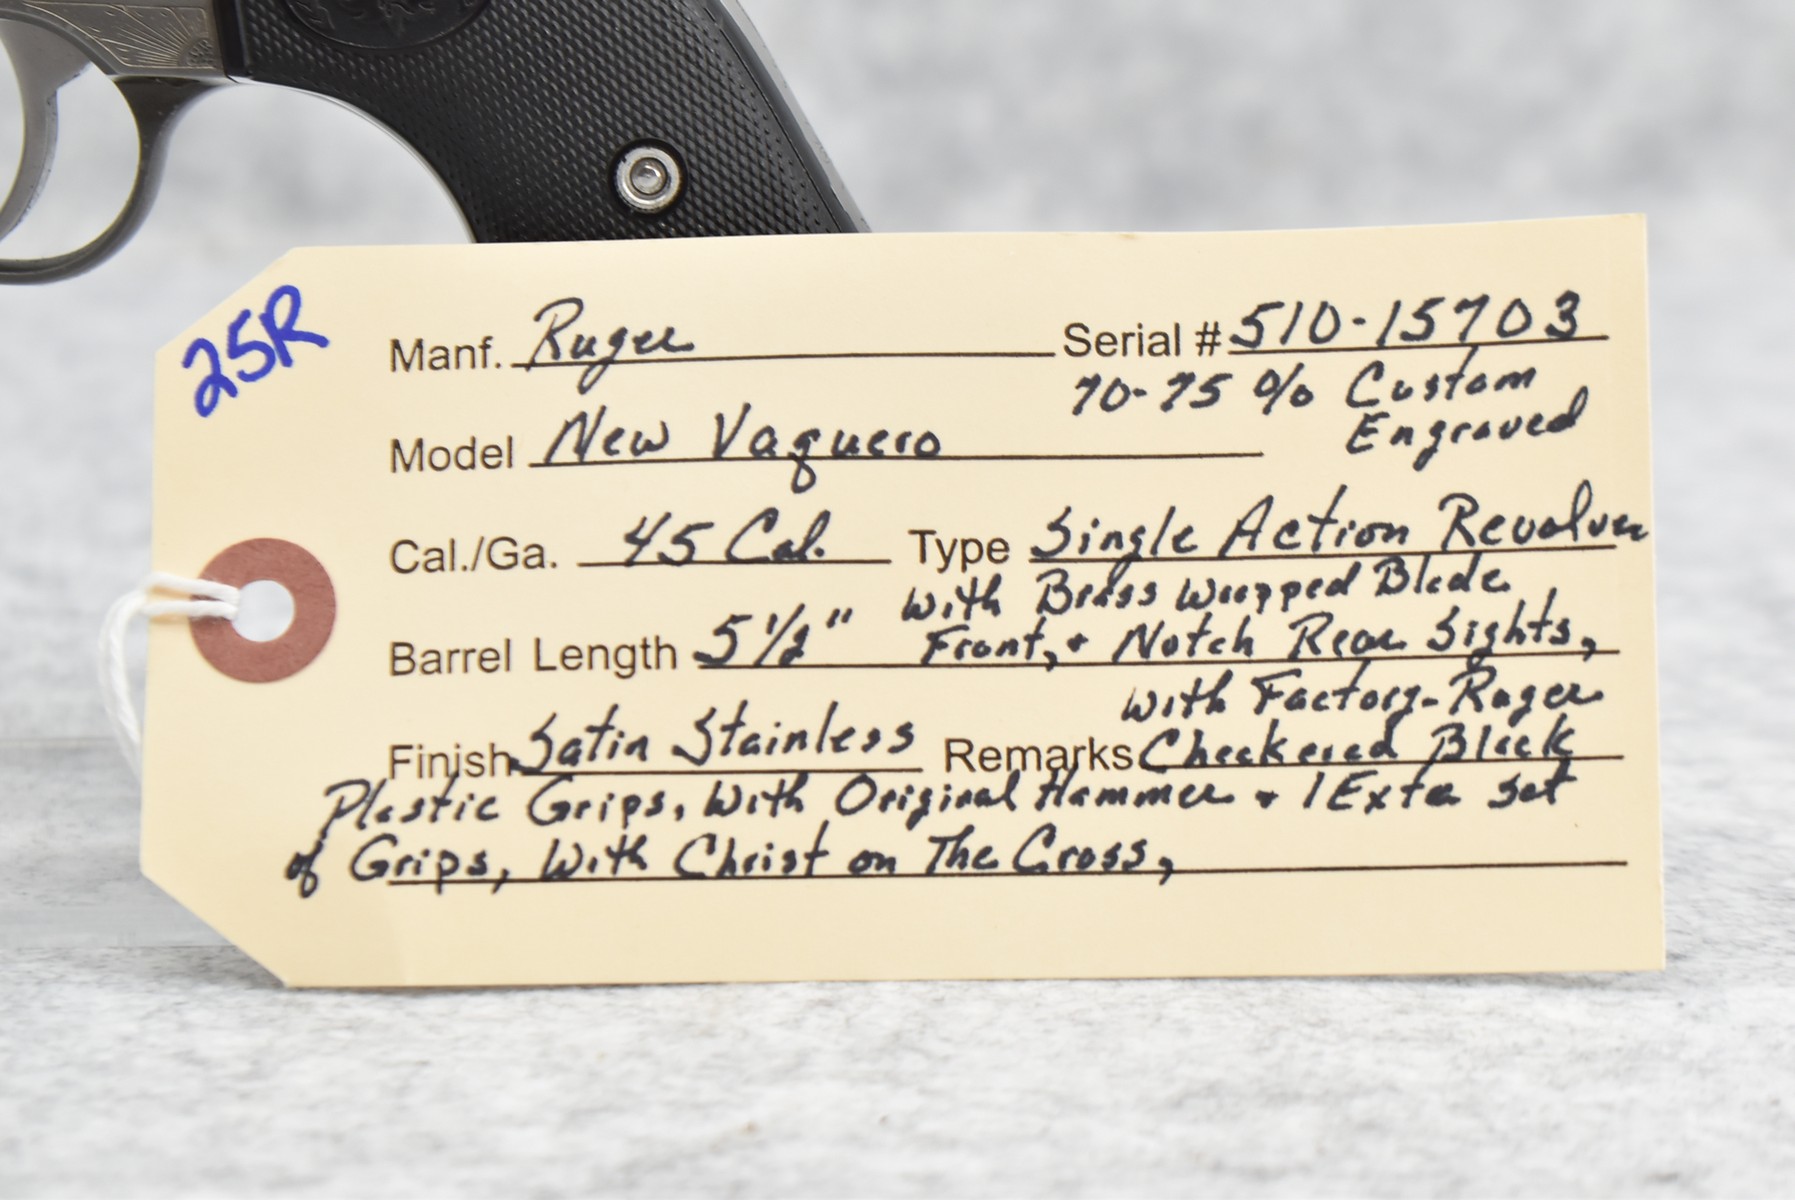 25R
Manf. Ruger Serial # 510-15703
70-75 % Custom
Engraved
Model New Vaquero
Cal./Ga. 45 Cal. Type Single Action Revolver
with Brass Wrapped Blade
Barrel Length 5 1/2" Front, + Notch Rear Sights,
with Factory-Ruger
Finish Satin Stainless Remarks Checkered Black
Plastic Grips, With Original Hammer + 1 Extra Set
of Grips, With Christ on The Cross,